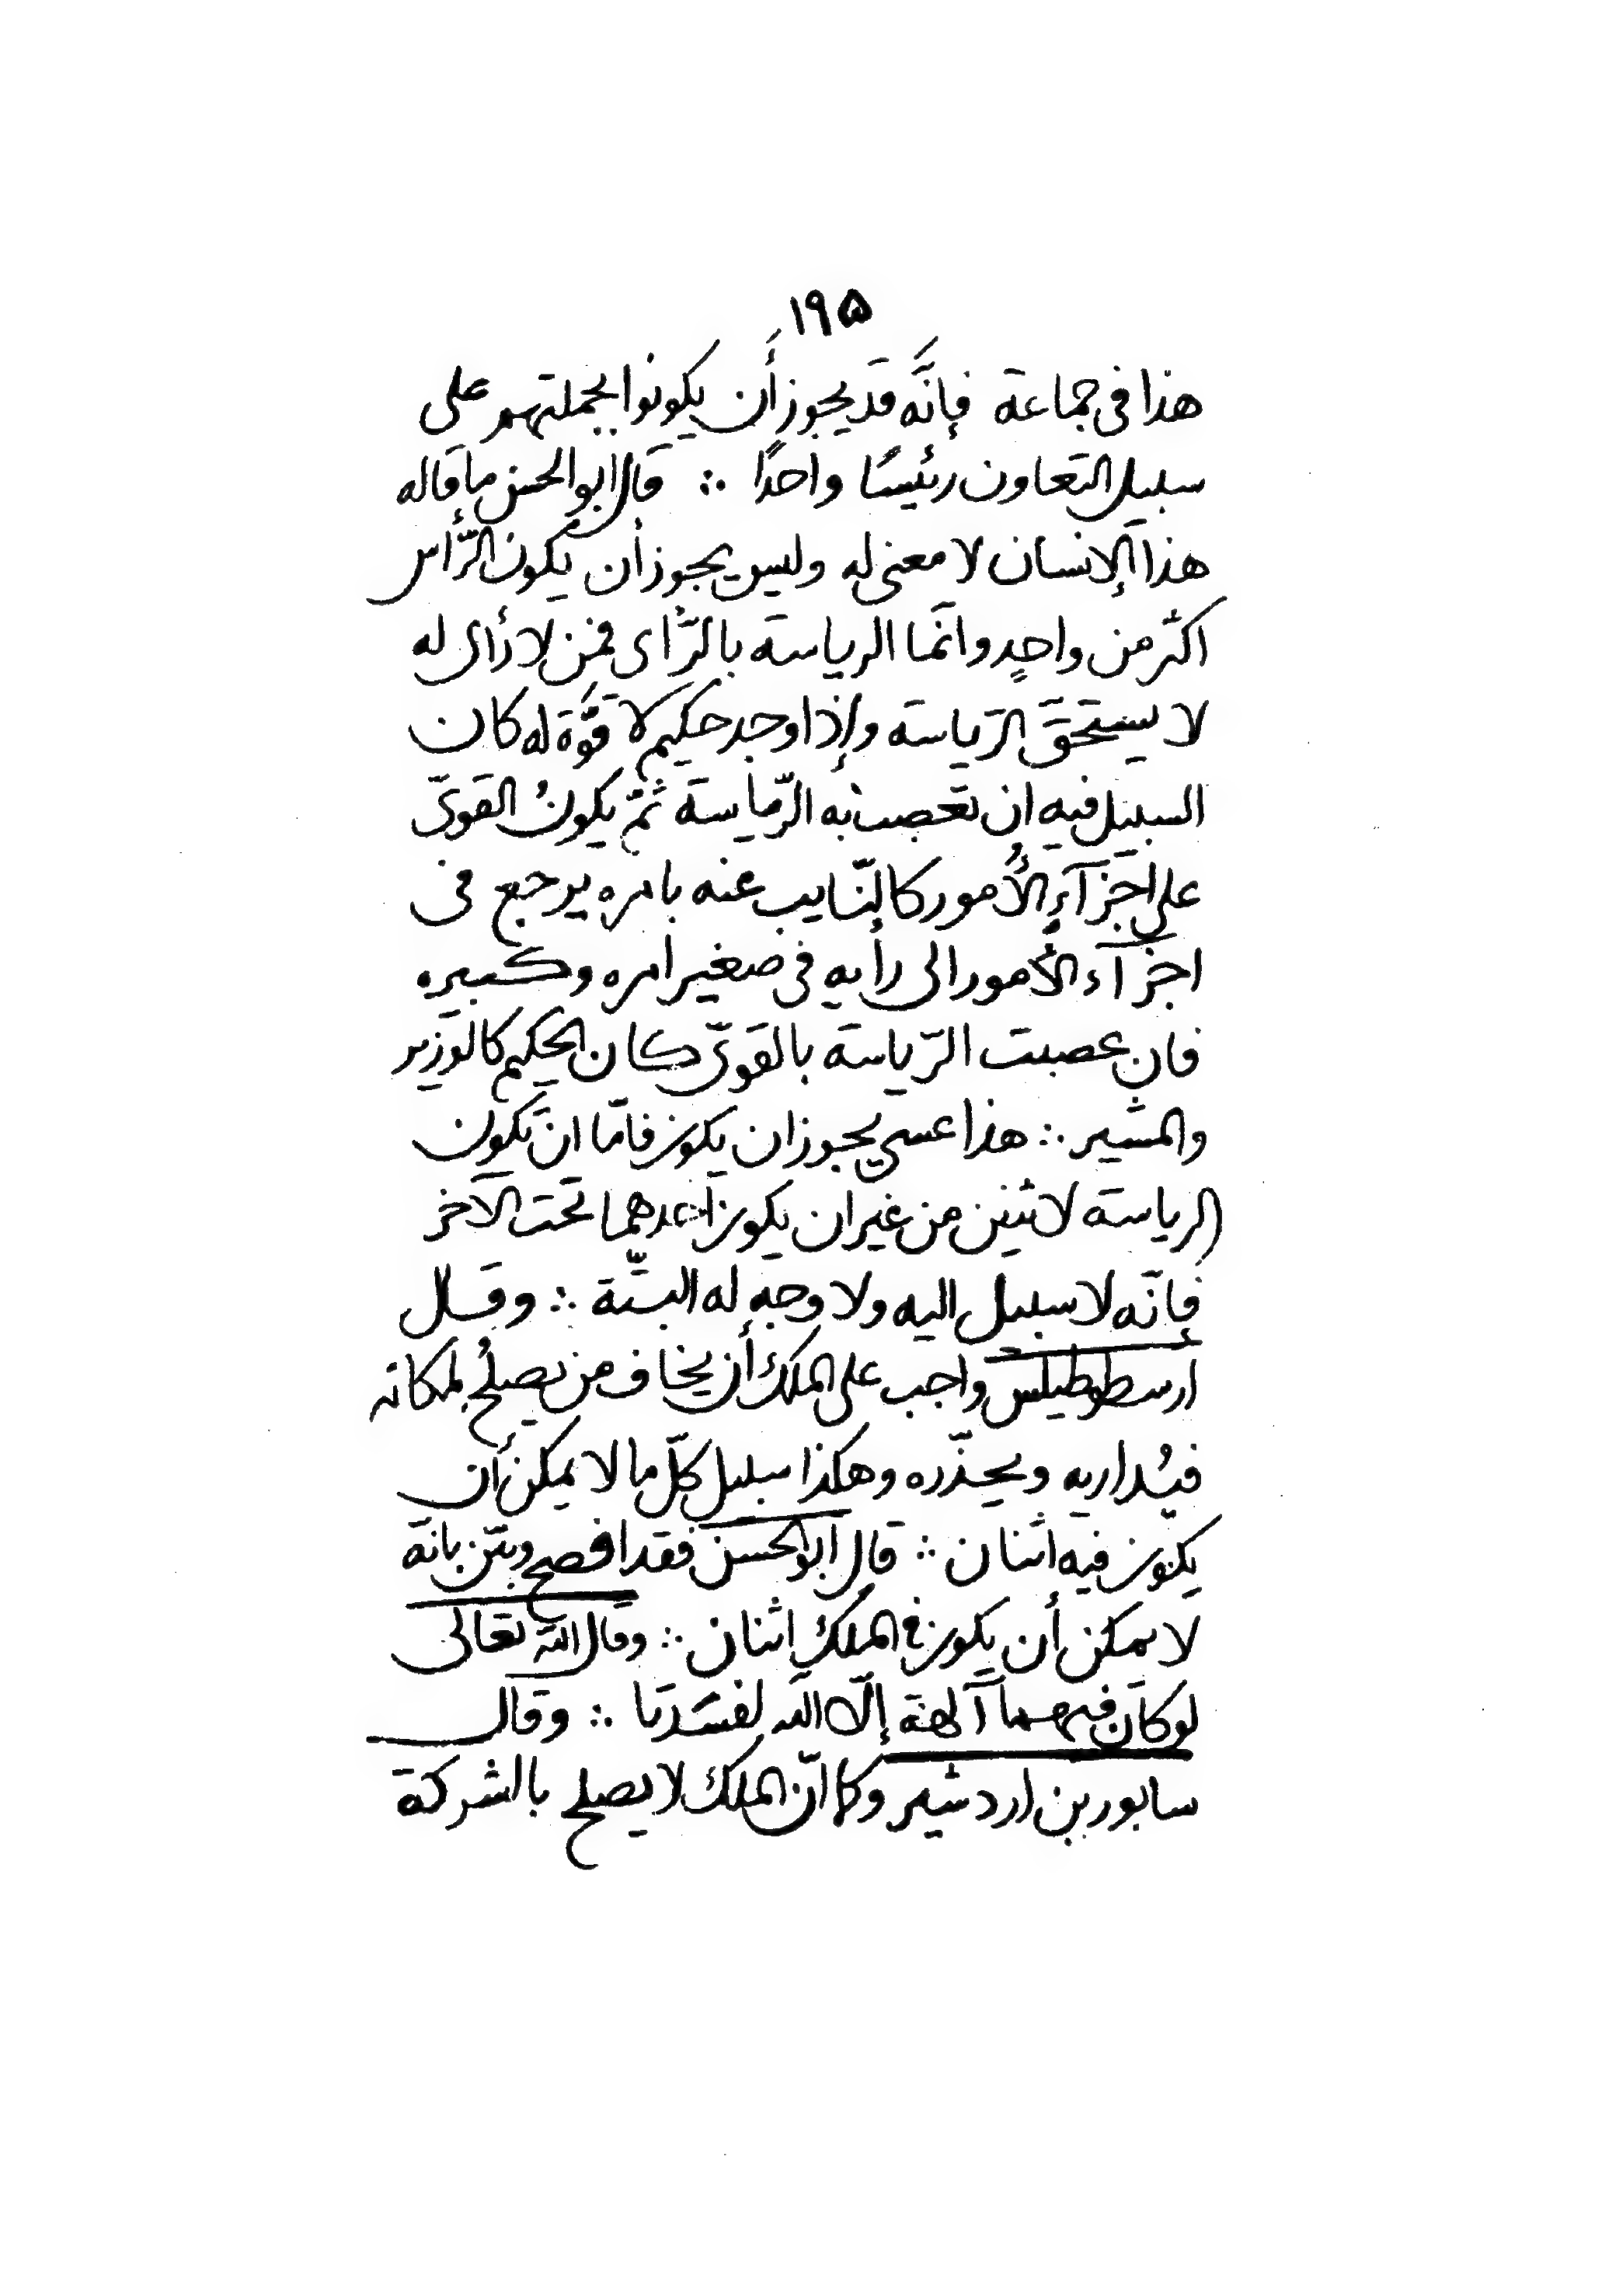 ١٩۵
هذا فى جماعة فإنَّه قد يجوز أَن يكونوا بجملتهم على
سبيل التعاون رئيسًا واحدًا ∴ قال ابو الحسن ما قاله
هذا الإنسان لا معنى له وليس يجوز أن يكون الرَّأس
اكثر من واحدٍ وانّما الرياسة بالرَّأى فمن لا رأى له
لا يستحقّ الرّياسة وإذا وجد حكيم لا قوَّة له كان
السبيل فيه ان تعصب به الرّياسة ثمّ يكونُ القوىّ
على اجزآءِ الأُمور كالنّايب عنه بامره يرجع فى
اجزآء الأمور الى رأيه فى صغير امره وكبيره
فان عصبت الرّياسة بالقوىّ كان الحكيم كالوزير
والمشير ∴ هذا عسى يجوز ان يكون فامّا ان تكون
الرياسة لاثنين من غير ان يكون احدهما تحت الآخر
فإنّه لا سبيل اليه ولا وجه له البتّة ∴ وقال
أرسطوطيلس واجب على الملك أن يخاف من يصلحُ لمكانه
فيُداريه ويحذّره وهكذا سبيل كلّ ما لا يمكن أن
يكون فيه اثنان ∴ قال ابو الحسن فقد افصح وبيّن بانّه
لا يمكن أن يكون فى الملك اثنان ∴ وقال الله تعالى
لو كان فيهما آلهة إلّا الله لفسَدَتا ∴ وقال
سابور بن اردشير وكما انّ الملك لا يصلح بالشركة